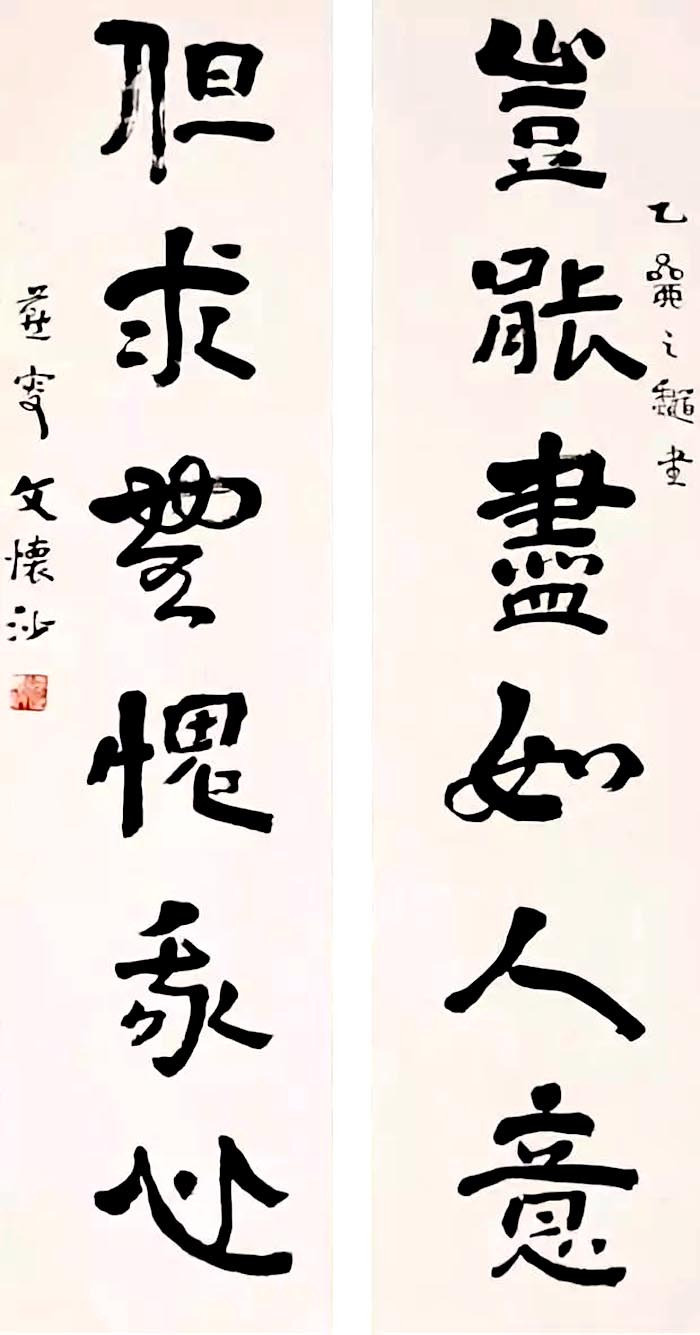 豈能盡如人意
乙之書
但求無愧我心
燕叟文懷沙